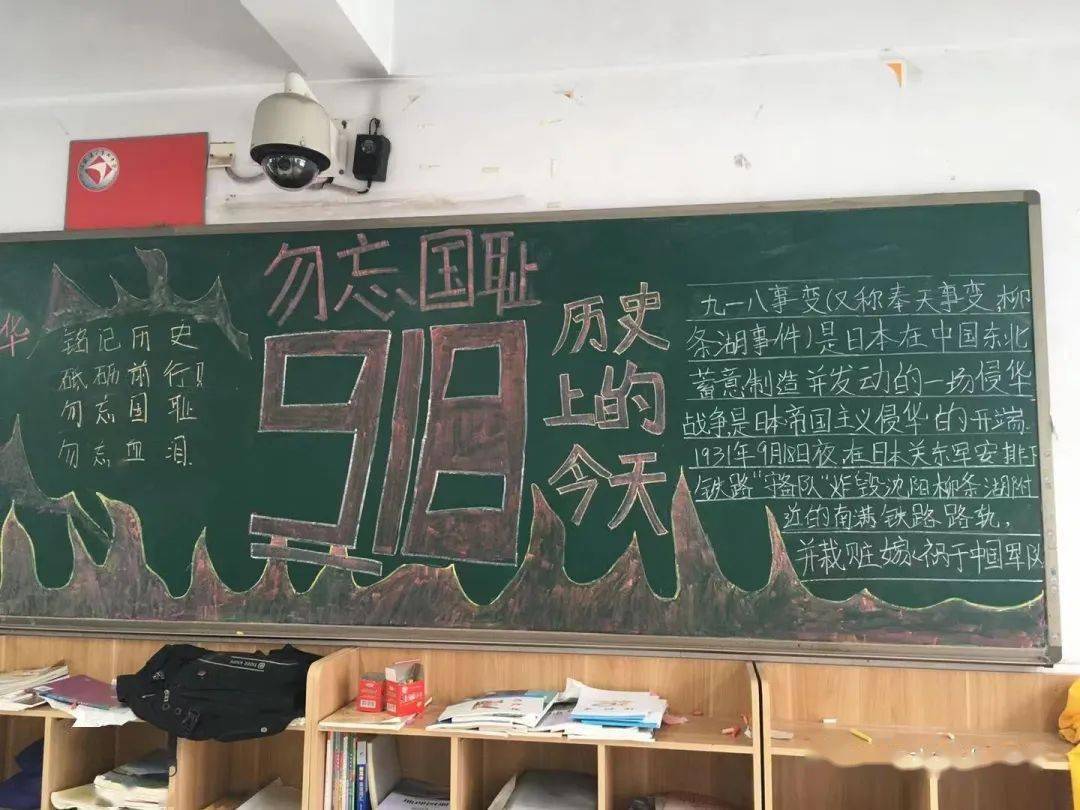 华
铭记历史
砥砺前行！
勿忘国耻
勿忘血泪
勿忘国耻
918
历史
上的
今天
九一八事变(又称奉天事变,柳
条湖事件)是日本在中国东北
蓄意制造并发动的一场侵华
战争是日本帝国主义侵华的开端.
1931年9月18日夜,在日本关东军安排下
铁路"守备队"炸毁沈阳柳条湖附
近的南满铁路路轨,
并栽赃嫁祸于中国军队